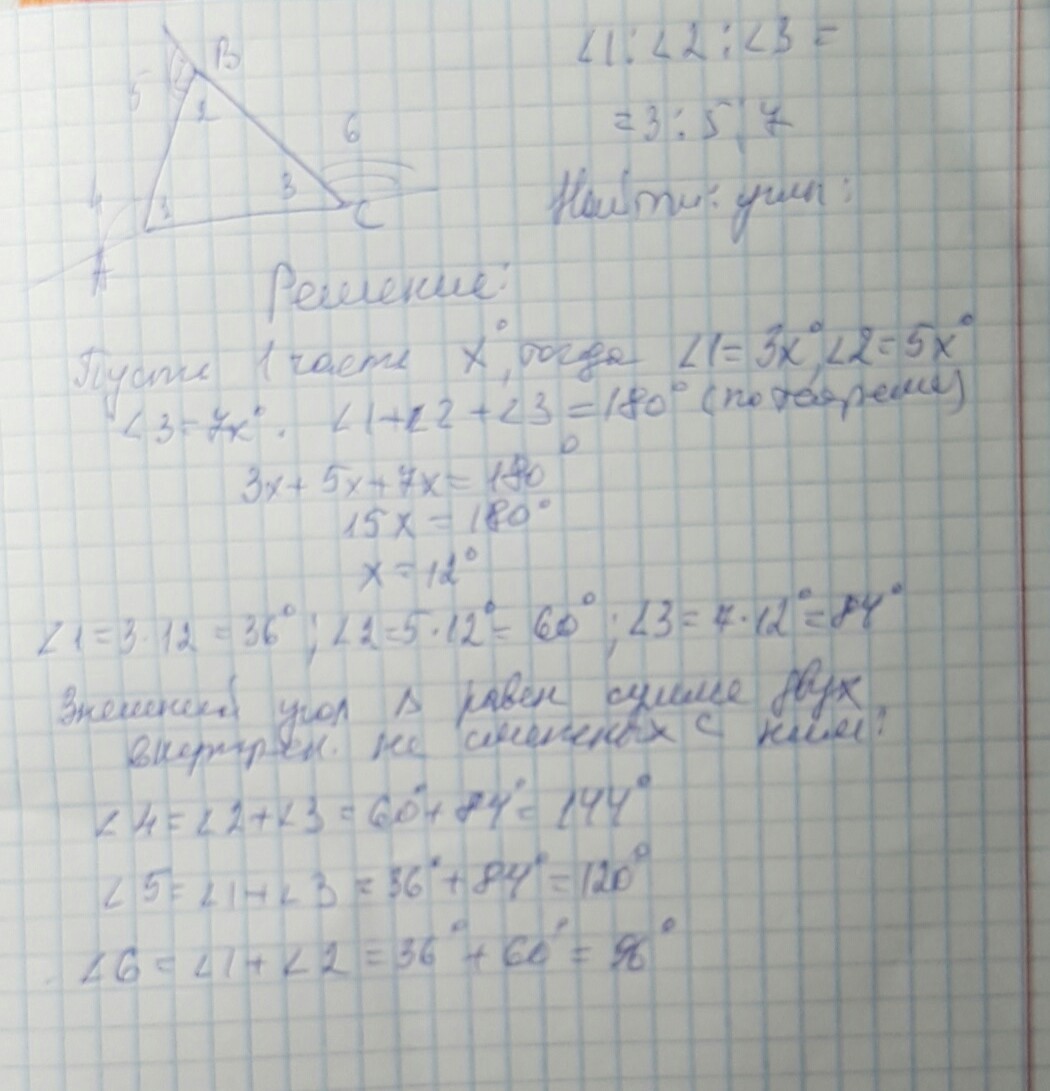 B
5
2
6
4
1
3
C
A
∠1:∠2:∠3=
=3:5:7
Найти: углы:
Решение:
Пусть 1 часть x°, тогда ∠1=3x°, ∠2=5x°
∠3=7x°. ∠1+∠2+∠3=180° (по теореме)
3x+5x+7x=180°
15x=180°
x=12°
∠1=3·12=36°; ∠2=5·12°=60°; ∠3=7·12°=84°
Внешний угол Δ равен сумме двух
внутрен. не смежных с ним:
∠4=∠2+∠3=60°+84°=144°
∠5=∠1+∠3=36°+84°=120°
∠6=∠1+∠2=36°+60°=96°